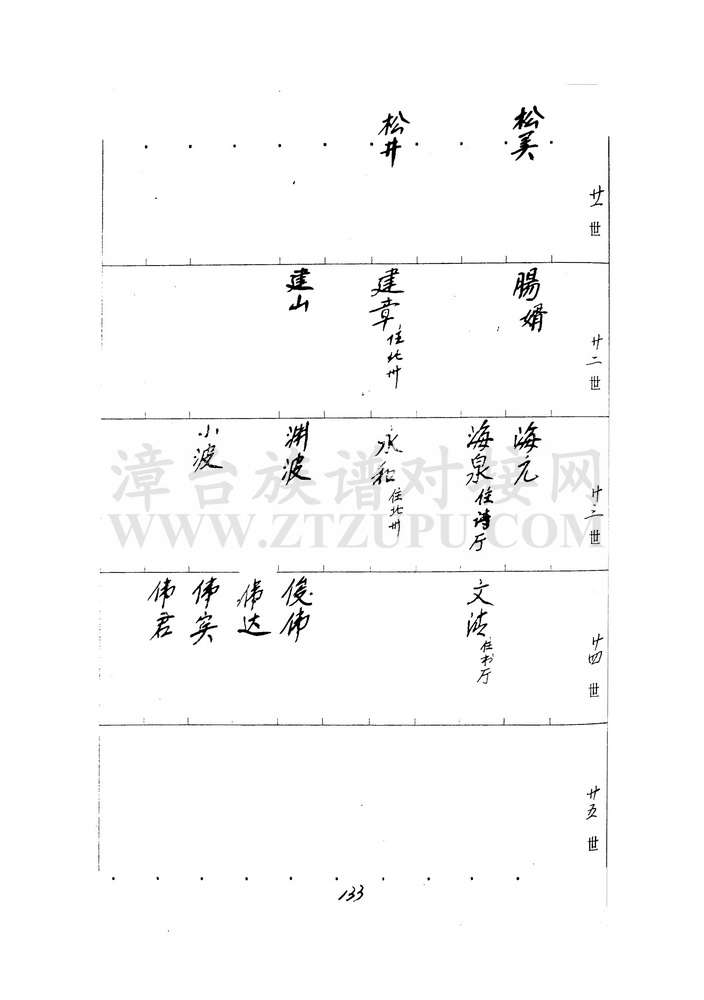 廿一世
松美
松井
廿二世
腸婿
建章住北卅
建山
廿三世
海元
海泉住诗厅
永和住北卅
渊波
小波
廿四世
文清住书厅
俊伟
伟达
伟宾
伟君
廿五世
漳台族谱对接网
WWW.ZTZUPU.COM
133